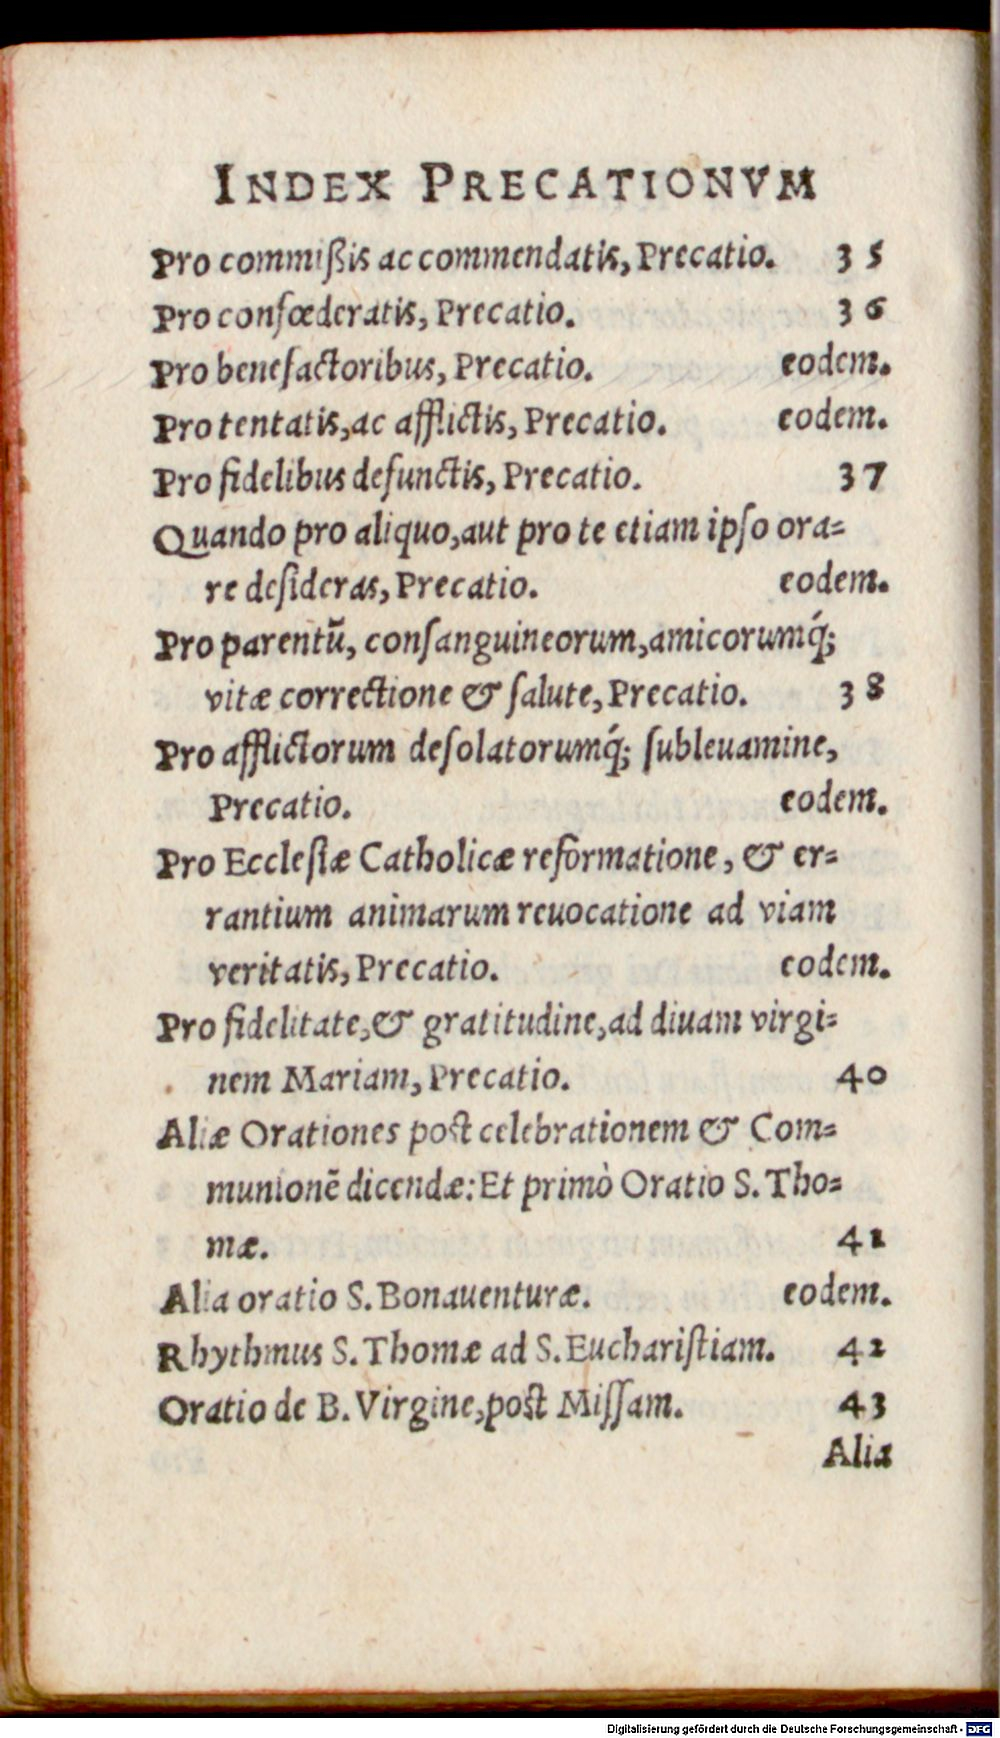 INDEX PRECATIONVM
Pro commißis ac commendatis, Precatio. 35
Pro confœderatis, Precatio. 36
Pro benefactoribus, Precatio. eodem.
Pro tentatis, ac afflictis, Precatio. eodem.
Pro fidelibus defunctis, Precatio. 37
Quando pro aliquo, aut pro te etiam ipſo ora=
re deſideras, Precatio. eodem.
Pro parentũ, conſanguineorum, amicorumq́;
vitæ correctione & ſalute, Precatio. 38
Pro afflictorum deſolatorumq́; ſubleuamine,
Precatio. eodem.
Pro Eccleſiæ Catholicæ reformatione, & er=
rantium animarum reuocatione ad viam
veritatis, Precatio. eodem.
Pro fidelitate, & gratitudine, ad diuam virgi=
nem Mariam, Precatio. 40
Aliæ Orationes poſt celebrationem & Com=
munionẽ dicendæ: Et primò Oratio S. Tho=
mæ. 41
Alia oratio S. Bonauenturæ. eodem.
Rhythmus S. Thomæ ad S. Euchariſtiam. 42
Oratio de B. Virgine, poſt Miſſam. 43
Alia
Digitalisierung gefördert durch die Deutsche Forschungsgemeinschaft - DFG